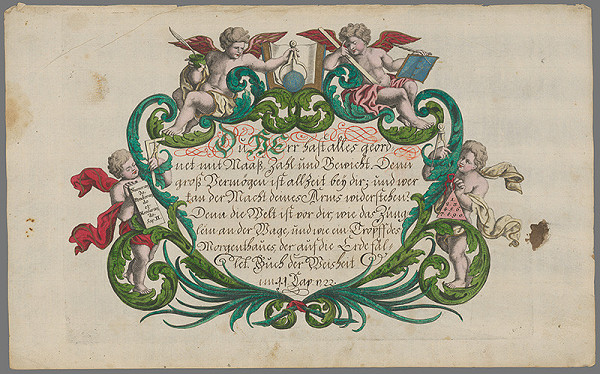 DU HErr hast alles geord
net mit Maaß, Zahl und Gewicht. Denn
groß Vermögen ist allzeit bey dir; und wer
kan der Macht deines Arms widerstehen?
Denn die Welt ist vor dir, wie das Züng
lein an der Wage, und wie ein Tropff des
Morgenthaues, der auf die Erde fäl
let. Buch der Weisheit
im 11 Cap. 22.